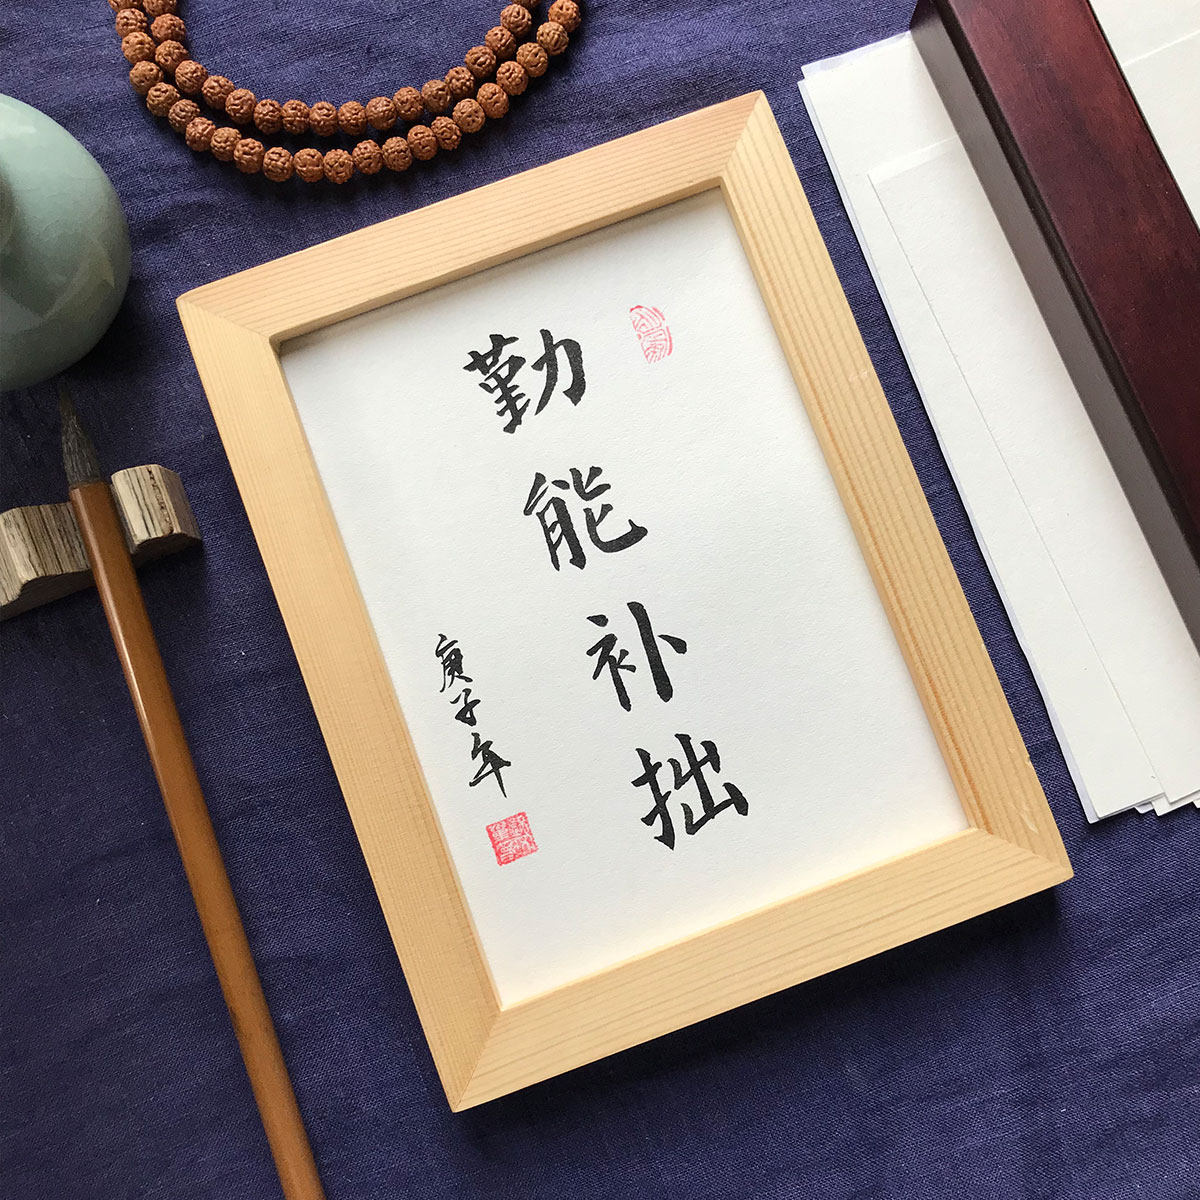 勤能补拙
庚子年